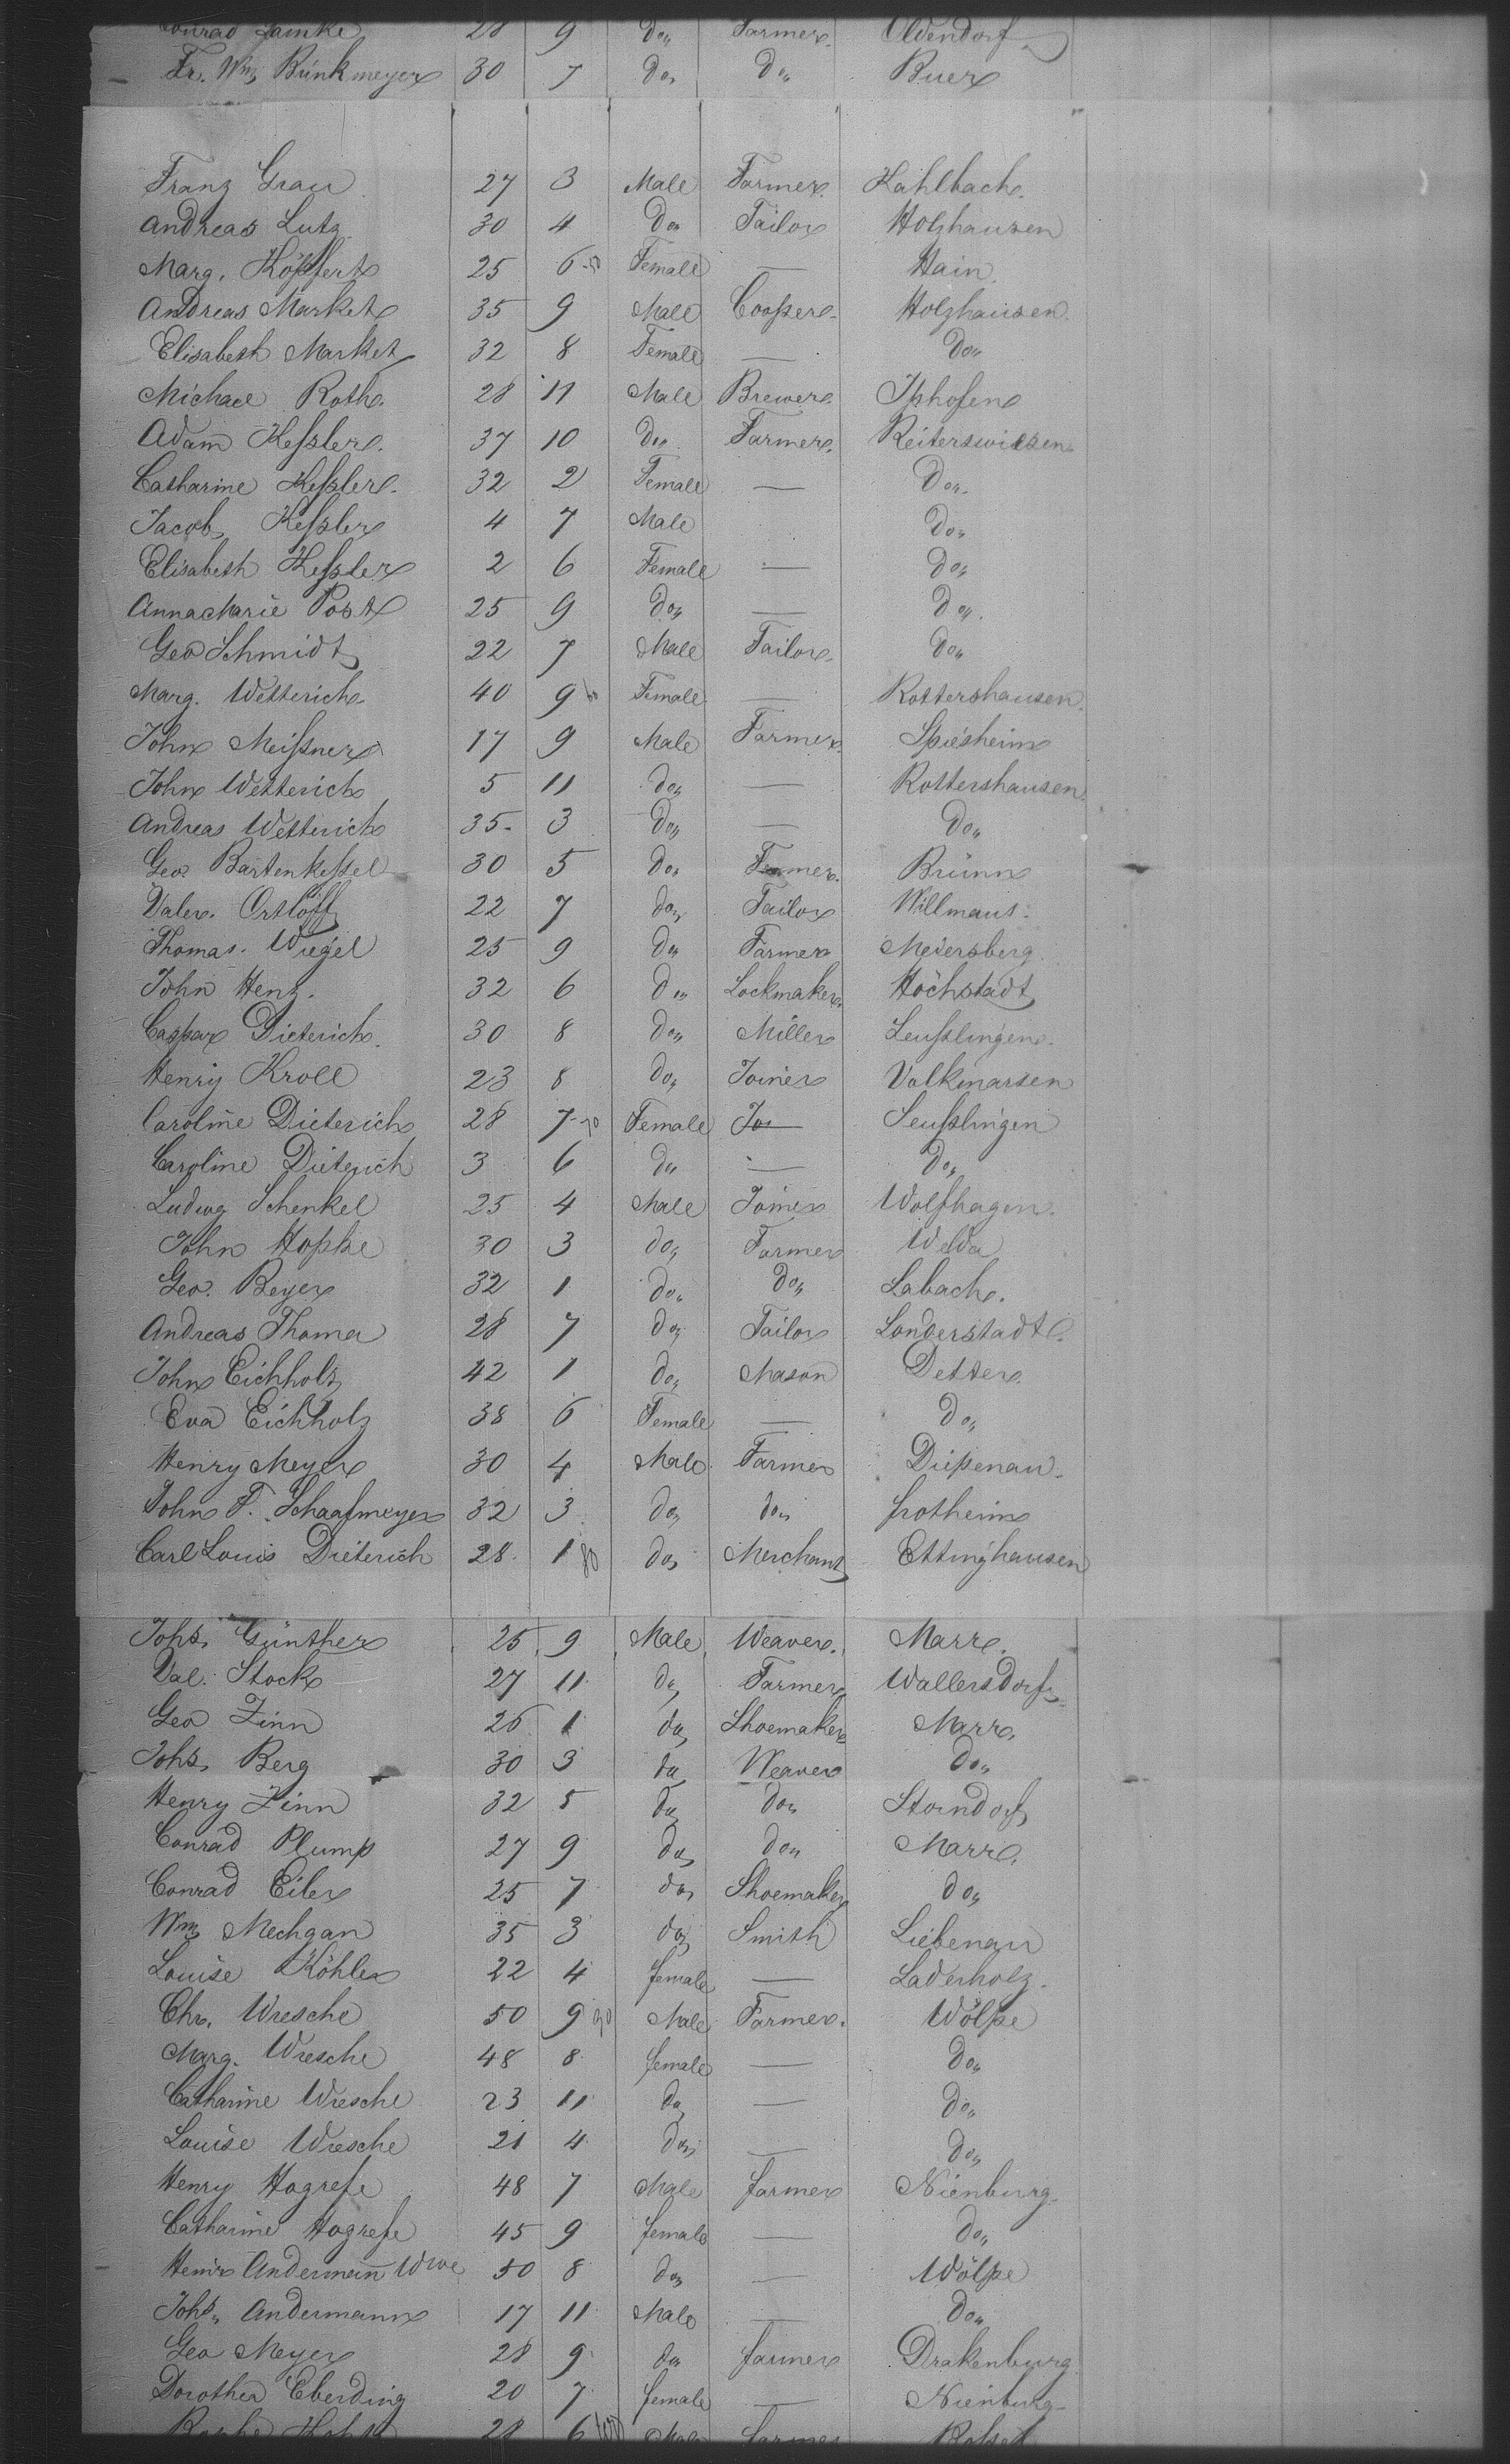 Conrad Lamke 28 9 do„ Farmer Oldendorf
Fr. Wm, Bünkmeyer 30 7 do„ do„ Buer
Franz Grau 27 3 Male Farmer Kahlbach
Andreas Lutz 30 4 do„ Tailor Holzhausen
Marg. Köpfert 25 6 50 Female — Hain
Andreas Market 35 9 Male Cooper Holzhausen
Elisabeth Market 32 8 Female — do„
Michael Roth 28 11 Male Brewer Iphofen
Adam Keßler 37 10 do„ Farmer Reiterswiesen
Catharine Keßler 32 2 Female — do„
Jacob Keßler 4 7 Male do„
Elisabeth Keßler 2 6 Female — do„
Anna Marie Post 25 9 do„ — do„
Geo Schmidt 22 7 Male Tailor do„
Marg. Wetterich 40 9 60 Female — Rottershausen
John Meißner 17 9 Male Farmer Spiesheim
John Wetterich 5 11 do„ — Rottershausen
Andreas Wetterich 35 3 do„ — do„
Geo. Bartenkeßel 30 5 do„ Farmer Brünn
Valer. Ortloff 22 7 do„ Tailor Willmans
Thomas Wiegel 25 9 do„ Farmer Meiersberg
John Henz 32 6 do„ Lockmaker Höchstadt
Caspar Dieterich 30 8 do„ Miller Leußlingen
Henry Kroll 23 8 do„ Joiner Volkmarsen
Caroline Dieterich 28 7 70 Female Jo— Seußlingen
Caroline Dieterich 3 6 do — do„
Ludwig Schenkel 25 4 Male Joiner Wolfhagen
John Hoppe 30 3 do„ Farmer Welda
Geo. Beyer 32 1 do„ do„ Labach
Andreas Thoma 28 7 do„ Tailor Londerstadt
John Eichholz 42 1 do„ Mason Detter
Eva Eichholz 38 6 Female — do„
Henry Meyer 30 4 Male Farmer Diepenau
John F. Schaafmeyer 32 3 do„ do„ Frotheim
Carl Louis Dieterich 28 1 80 do„ Merchant Ettinghausen
Johs, Günther 25 9 Male Weaver Marr
Val. Stock 27 11 do„ Farmer Wallersdorf
Geo Zinn 26 1 do„ Shoemaker Marr
Johs, Berg 30 3 do„ Weaver do„
Henry Zinn 32 5 do„ do„ Storndorf
Conrad Plump 27 9 do„ do„ Marr
Conrad Eiler 25 7 do„ Shoemaker do„
Wm Mechgan 35 3 do„ Smith Liebenau
Louise Köhler 22 4 female — Laderholz
Chr. Wresche 50 9 90 Male Farmer Wölpe
Marg. Wresche 48 8 female — do„
Catharine Wresche 23 11 do„ — do„
Louise Wresche 21 4 do„ — do„
Henry Hogrefe 48 7 Male farmer Nienburg
Catharine Hogrefe 45 9 female — do„
Henr Andermann Wwe 50 8 do„ — Wölpe
Johs„ Andermann 17 11 Male — do„
Geo Meyer 28 9 do farmer Drakenburg
Dorothea Eberding 20 7 female — Nienburg
28 6 100 Male farmer